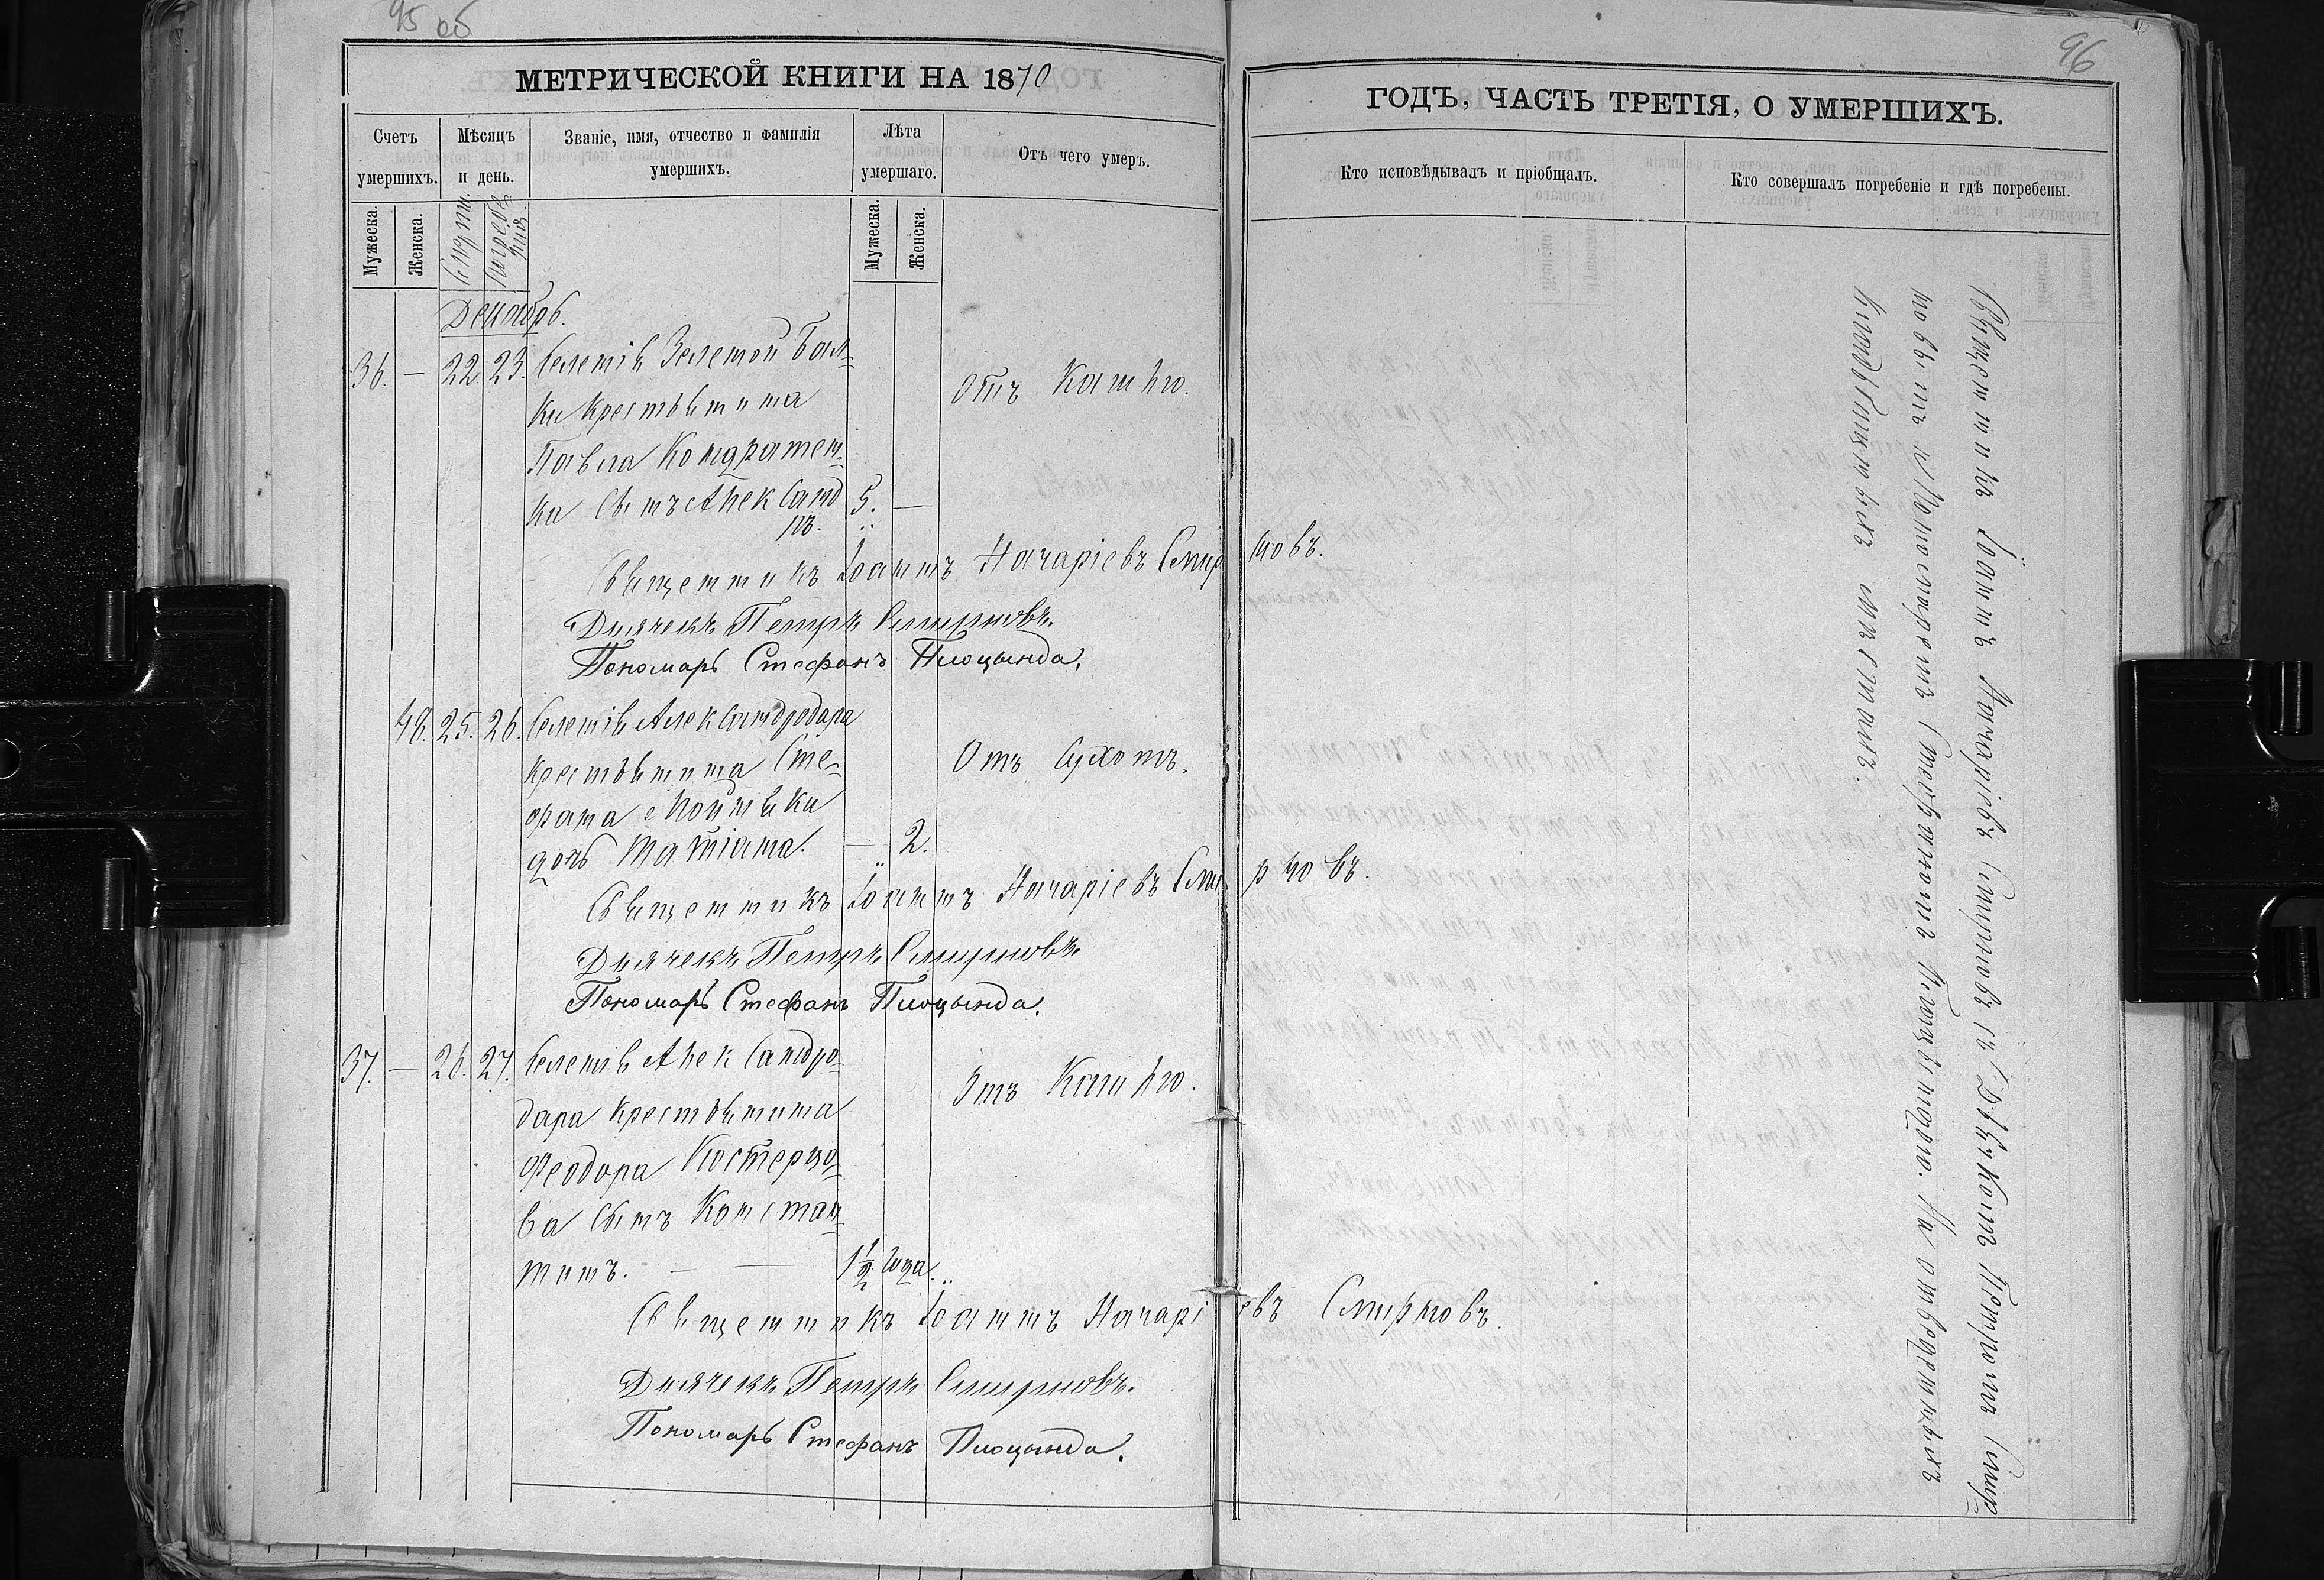 95 об
МЕТРИЧЕСКОЙ КНИГИ НА 1870
Счетъ умершихъ.
Мѣсяцъ и день.
Званіе, имя, отчество и фамилія умершихъ.
Лѣта умершаго.
Отъ чего умеръ.
Мужеска.
Женска.
Смерти.
Погребенія.
Мужеска.
Женска.
Декабрь.
36. — 22. 23. Селенія Зеленой Бал-
ки крестьянина
Павла Кондратен-
ка сынъ Александ 5. —
ръ.
Отъ кашлю.
Священникъ Іоаннъ Назаріевъ Смирновъ.
Дьячекъ Петръ Смирновъ.
Пономарь Стефанъ Плоцында.
48. 25. 26. Селенія Александродара
крестьянина Сте-
фана
дочь Татіана. — 2.
Отъ сухотъ.
Священникъ Іоаннъ Назаріевъ Смирновъ.
Дьячекъ Петръ Смирновъ
Пономарь Стефанъ Плоцында.
37. — 26. 27. Селенія Александро-
дара крестьянина
Феодора Костерно-
ва сынъ Констан-
тинъ. — — 1 1/2 года.
Отъ кашлю.
Священникъ Іоаннъ Назаріевъ Смирновъ.
Дьячекъ Петръ Смирновъ.
Пономарь Стефанъ Плоцында.
96
ГОДЪ, ЧАСТЬ ТРЕТІЯ, О УМЕРШИХЪ.
Кто исповѣдывалъ и пріобщалъ.
Кто совершалъ погребеніе и гдѣ погребены.
Священникъ Іоаннъ Назаріевъ Смирновъ съ Дьячкомъ Петромъ Смир-
новымъ и Пономаремъ Стефаномъ Плоцындою. На отведенныхъ
кладбищныхъ мѣстахъ.